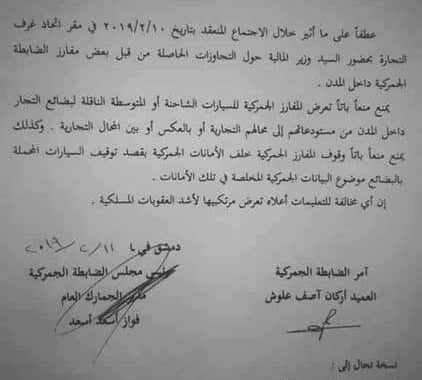 عطفاً على ما أثير خلال الاجتماع المنعقد بتاريخ ٢٠١٩/٢/١٠ في مقر اتحاد غرف
التجارة بحضور السيد وزير المالية حول التجاوزات الحاصلة من قبل بعض مفارز الضابطة
الجمركية داخل المدن .
يمنع منعاً باتاً تعرض المفارز الجمركية للسيارات الشاحنة أو المتوسطة الناقلة لبضائع التجار
داخل المدن من مستودعاتهم إلى محالهم التجارية أو بالعكس أو بين المحال التجارية . وكذلك
يمنع منعاً باتاً وقوف المفارز الجمركية خلف الأمانات الجمركية بقصد توقيف السيارات المحملة
بالبضائع موضوع البيانات الجمركية المخلصة في تلك الأمانات .
إن أي مخالفة للتعليمات أعلاه تعرض مرتكبيها لأشد العقوبات المسلكية .
دمشق في ١١ / ٢ / ٢٠١٩
آمر الضابطة الجمركية
العميد آصف علوش
رئيس مجلس الضابطة الجمركية
مدير الجمارك العام
فواز أسعد أسعد
نسخة تحال إلى :